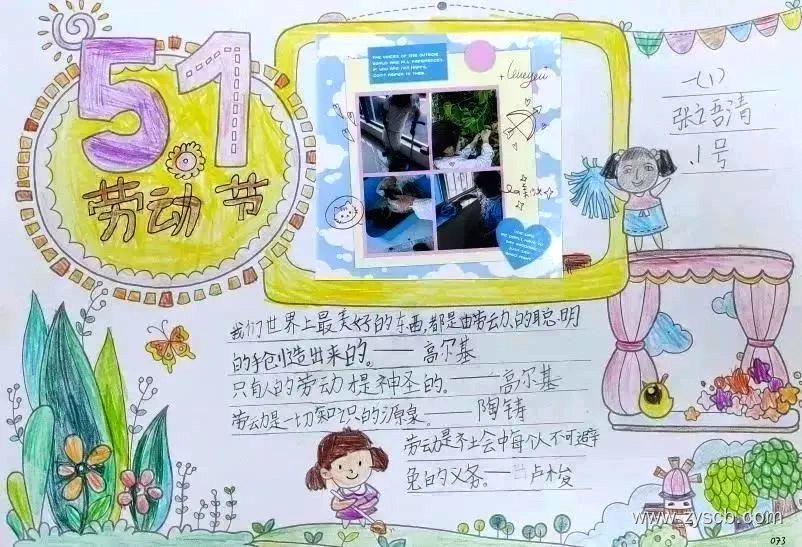 5.1
劳动节
THE VOICES OF THE OUTSIDE
WORLD ARE ALL REFERENCES,
IF YOU ARE NOT HAPPY,
DON'T REFER TO THEM.
一(1)
张语清
1号
我们世界上最美好的东西,都是由劳动、的聪明
的手创造出来的。——高尔基
只有人的劳动才是神圣的。——高尔基
劳动是一切知识的源泉。——陶铸
劳动是社会中每个人不可避
免的义务。——卢梭
www.zyscb.com
073